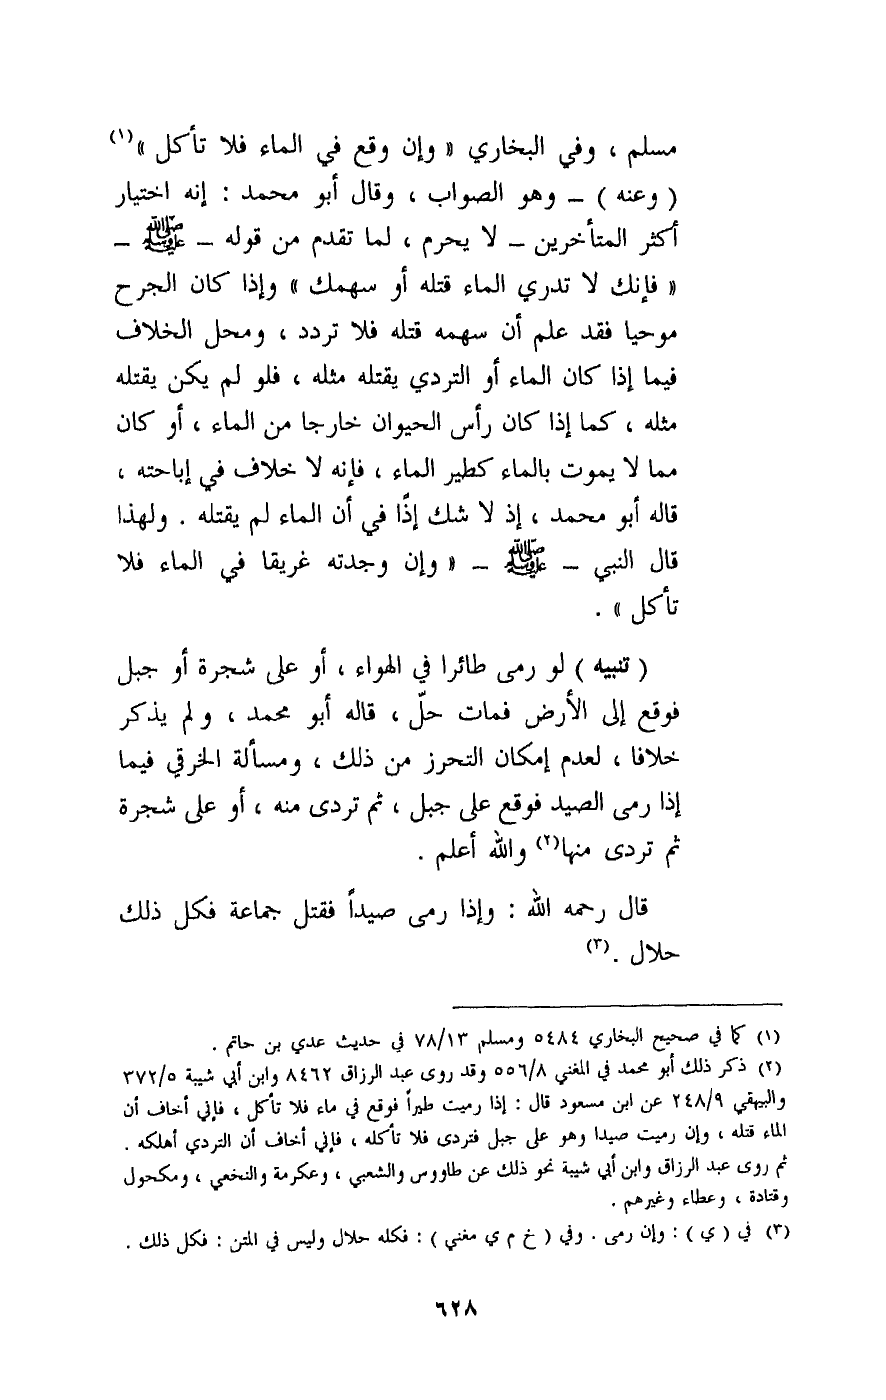 مسلم ، وفي البخاري « وإن وقع في الماء فلا تأكل »(١)
( وعنه ) – وهو الصواب ، وقال أبو محمد : إنه اختيار
أكثر المتأخرين – لا يحرم ، لما تقدم من قوله – ﷺ –
« فإنك لا تدري الماء قتله أو سهمك » وإذا كان الجرح
موحيا فقد علم أن سهمه قتله فلا تردد ، ومحل الخلاف
فيما إذا كان الماء أو التردي يقتله مثله ، فلو لم يكن يقتله
مثله ، كما إذا كان رأس الحيوان خارجا من الماء ، أو كان
مما لا يموت بالماء كطير الماء ، فإنه لا خلاف في إباحته ،
قاله أبو محمد ، إذ لا شك إذًا في أن الماء لم يقتله . ولهذا
قال النبي – ﷺ – « وإن وجدته غريقا في الماء فلا
تأكل » .
( تنبيه ) لو رمى طائرا في الهواء ، أو على شجرة أو جبل
فوقع إلى الأرض فمات حلّ ، قاله أبو محمد ، ولم يذكر
خلافا ، لعدم إمكان التحرز من ذلك ، ومسألة الخرقي فيما
إذا رمى الصيد فوقع على جبل ، ثم تردى منه ، أو على شجرة
ثم تردى منها(٢) والله أعلم .
قال رحمه الله : وإذا رمى صيداً فقتل جماعة فكل ذلك
حلال .(٣)
(١) كما في صحيح البخاري ٥٤٨٤ ومسلم ٧٨/١٣ في حديث عدي بن حاتم .
(٢) ذكر ذلك أبو محمد في المغني ٥٥٦/٨ وقد روى عبد الرزاق ٨٤٦٢ وابن أبي شيبة ٣٧٢/٥
والبيهقي ٢٤٨/٩ عن ابن مسعود قال : إذا رميت طيراً فوقع في ماء فلا تأكل ، فإني أخاف أن
الماء قتله ، وإن رميت صيدا وهو على جبل فتردى فلا تأكله ، فإني أخاف أن التردي أهلكه .
ثم روى عبد الرزاق وابن أبي شيبة نحو ذلك عن طاووس والشعبي ، وعكرمة والنخعي ، ومكحول
وقتادة ، وعطاء وغيرهم .
(٣) في ( ي ) : وإن رمى . وفي ( خ م ي مغني ) : فكله حلال وليس في المتن : فكل ذلك .
٦٢٨